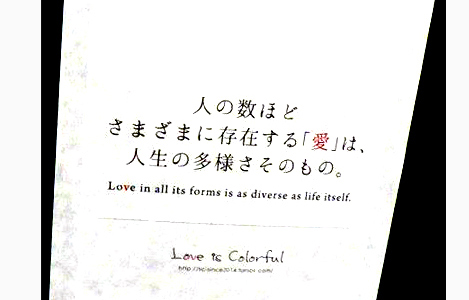 人の数ほど
さまざまに存在する「愛」は、
人生の多様さそのもの。
Love in all its forms is as diverse as life itself.
Love is Colorful